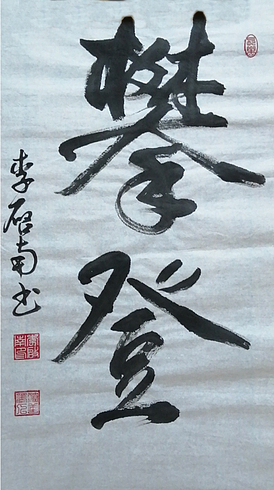 攀登
李启南书